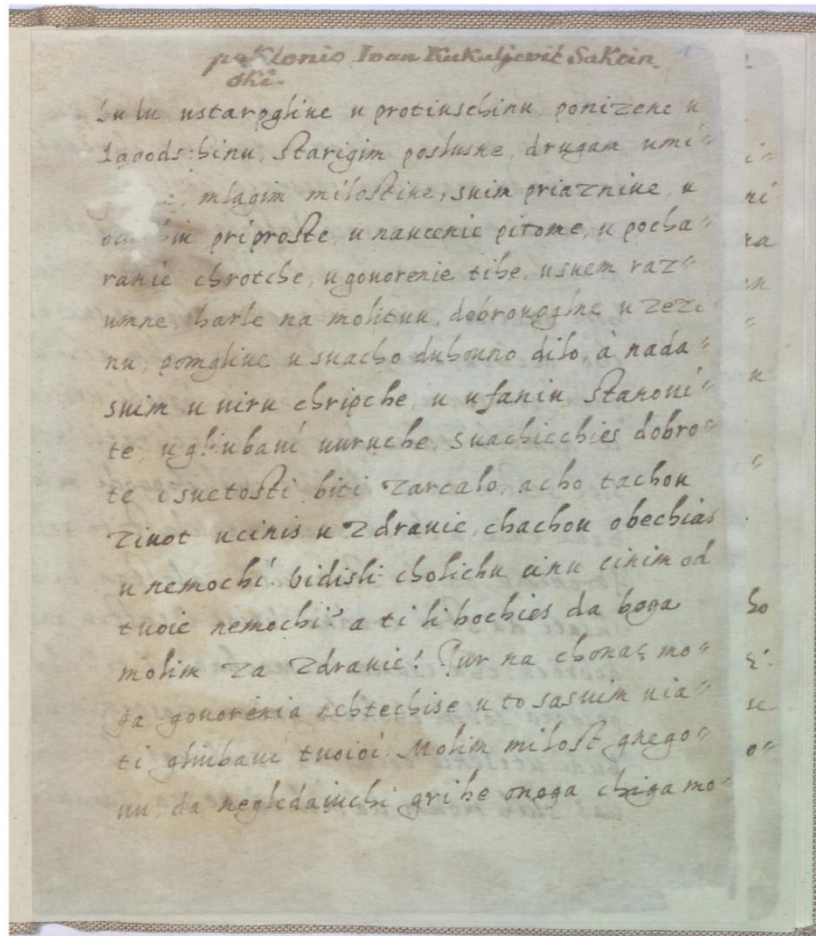 poklonio Ivan Kukuljević Sakcin_
ski.
bu lu ustarpgliue u protiuschinu, ponizene u
starigim poslusne, drugam umi"
mlagim milostiue, suim priazniue, u
priproste, u naucenie pitome, u pocha"
ranie chrotche, u gouorenie tihe, usuem raz"
umne, harle na molituu, dobrouoglne u zezi"
nu, pomgliue u suacho duhouno dilo, à nada"
suim u uiru chripche, u ufaniu stanoui"
te, u gliubaui uuruche, suachicchies dobro"
te i suetosti biti zarcalo, acho tachou
ziuot ucinis u zdrauie, chachou obechias
u nemochi! vidisli cholichu cinu cinim od
tuoie nemochi? a ti li hochies da boga
molim za zdrauie! Pur na chonaç mo"
ga gouorenia nehtechise u to sasuim uia"
ti gliubaui tuoioi. Molim milost gnego"
uu, da negledaiuchi grihe onoga chiga mo"